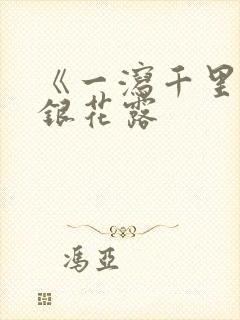 《一瀉千里
銀花露
馮亞